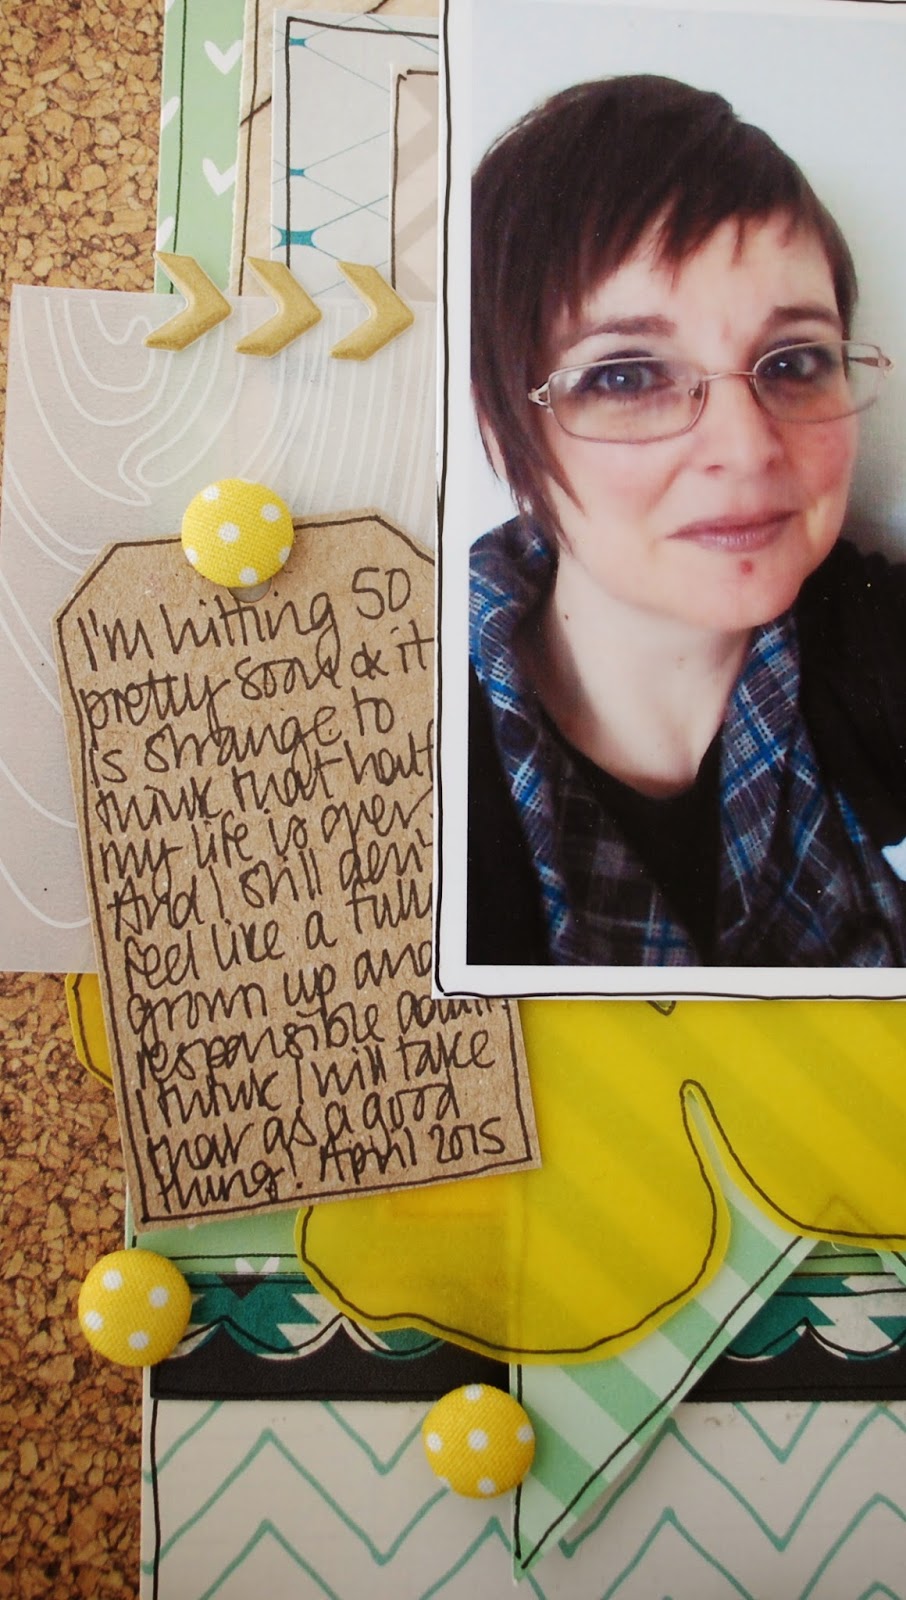 I'm hitting 50
pretty soon & it
is strange to
think that half
my life is over.
And I still
feel like a fully
grown up and
responsible adult.
I think I will take
that as a good
thing! April 2015